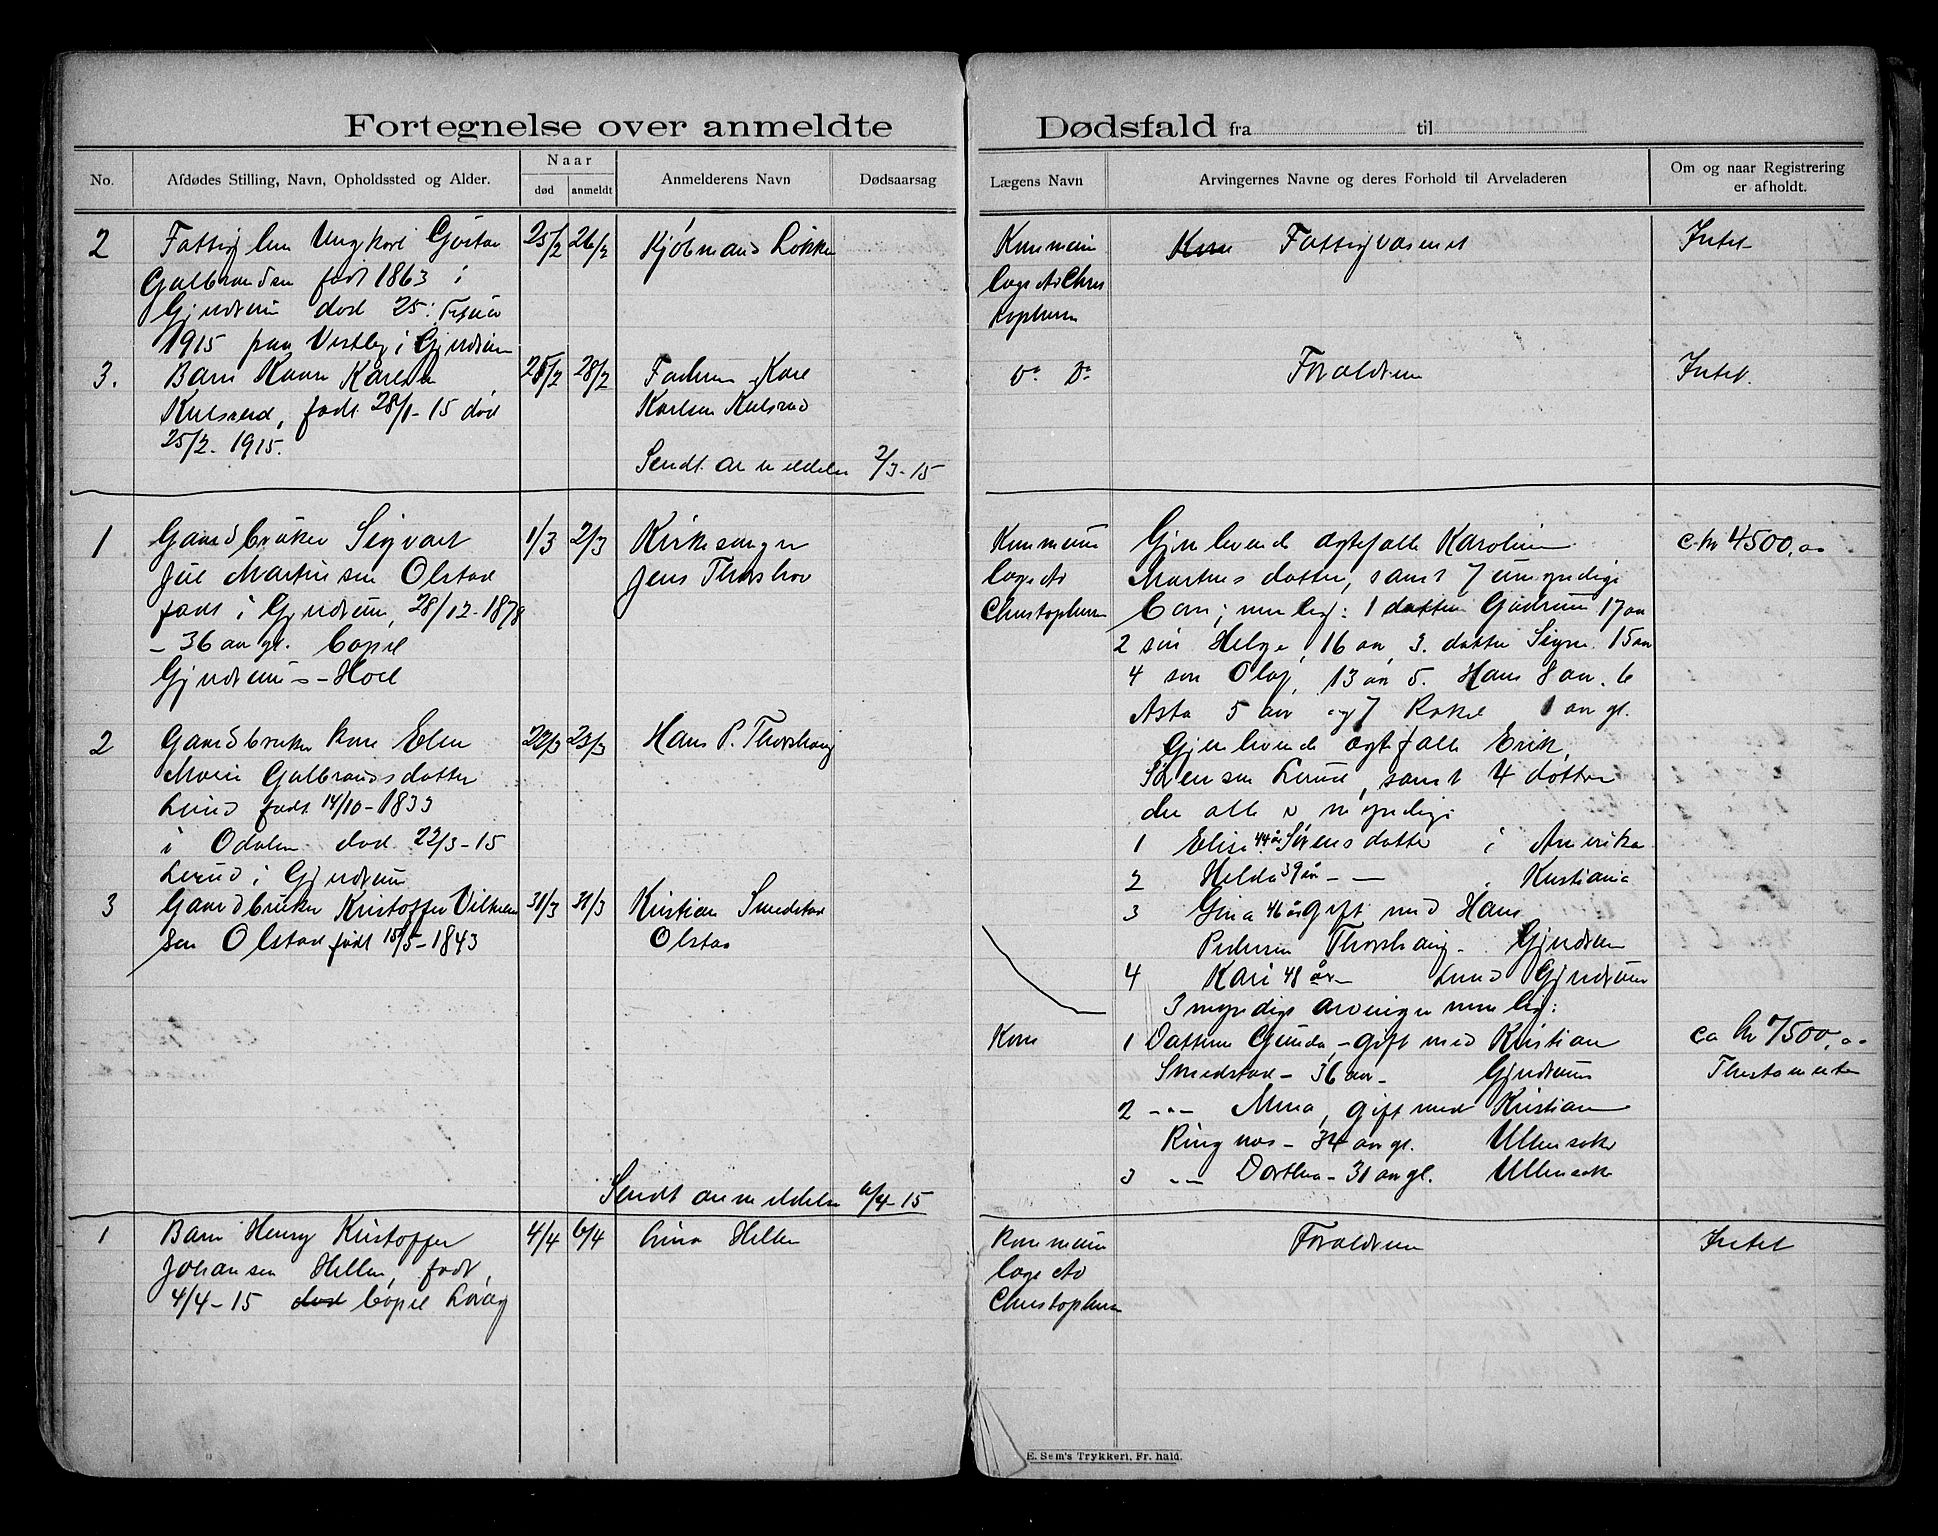 Fortegnelse over anmeldte Dødsfald fra til
No.
Afdødes Stilling, Navn, Opholdssted og Alder.
Naar
død
anmeldt
Anmelderens Navn
Dødsaarsag
Lægens Navn
Arvingernes Navne og deres Forhold til Arveladeren
Om og naar Registrering
er afholdt.
2 Fattiglem Ungkarl Gustav 25/2 26/2 Kjølmand Løkken Kommune Fattigvæsenet Intet
Gulbrandsen født 1863 i læge A Chris
Gjerdrum død 25: Febru tophersen
1915 paa Vestby i Gjerdrum
3. Barn Kaare Karlsen 25/2 28/2 Faderen Karl Do Do Forældrene Intet.
Kulsrud, født 28/1-15 død Karlsen Kulsrud
25/2-1915.
Sendt anmeldelse 2/3-15
1 Gaardbruker Sigvart 1/3 2/3 Kirkesanger Kommune Gjenlevende ægtefælle Karoline c. kr 4500,00
Jul Martinsen Olstad Jens Thorshov læge A Martinsdatter, samt 7 umyndige
født i Gjerdrum, 28/12-1878 Christophersen barn; nemlig: 1 datter Gudrun 17 aar
- 36 aar gl. bopæl 2 søn Helge, 16 aar, 3. datter Signe 15 aar
Gjerdrum - Hoel 4 søn Olaf, 13 aar 5. Hans 8 aar. 6
Asta 5 aar og 7 Rakel 1 aar gl.
2 Gaardbruker kone Elen 22/3 23/3 Hans P. Thorshaug Gjenlevende ægtefælle Erik
Marie Gulbrandsdatter Sørensen Lerud, samt 4 døttre
Lerud født 14/10-1833 der alle er myndige
i Odalen død 22/3-15 1 Elise 44 år Sørensdatter i Amerika
Lerud i Gjerdrum 2 Hilda 39 år - — Kristiania
3 Gaardbruker Kristoffer Vilhelm 31/3 31/3 Kristian Smedstad 3 Gina 46 år gift med Hans
sen Olstad født 15/5-1843 Olstad Pedersen Thorshaug - Gjerdrum
4 Kari 48 år - Lerud Gjerdrum
3 myndige arvinger nemlig:
Kom 1 Datteren Gunda, - gift med Kristian ca kr 7500,00
Smedstad - 36 aar - Gjerdrum Thestamente
2 -"- Mina, gift med Kristian
Ringnæs - 34 aar gl. Ullensaker
3 -"- Dorthea - 31 aar gl. Ullensaker
Sendt anmeldelse 6/4-15
1 Barn Henry Kristoffer 4/4 6/4 Lina Hellen Kommune Forældrene Intet
Johansen Hellen, født, læge A
4/4-15 død bopæl Christophersen
E. Sem's Trykkeri, Fr.hald.